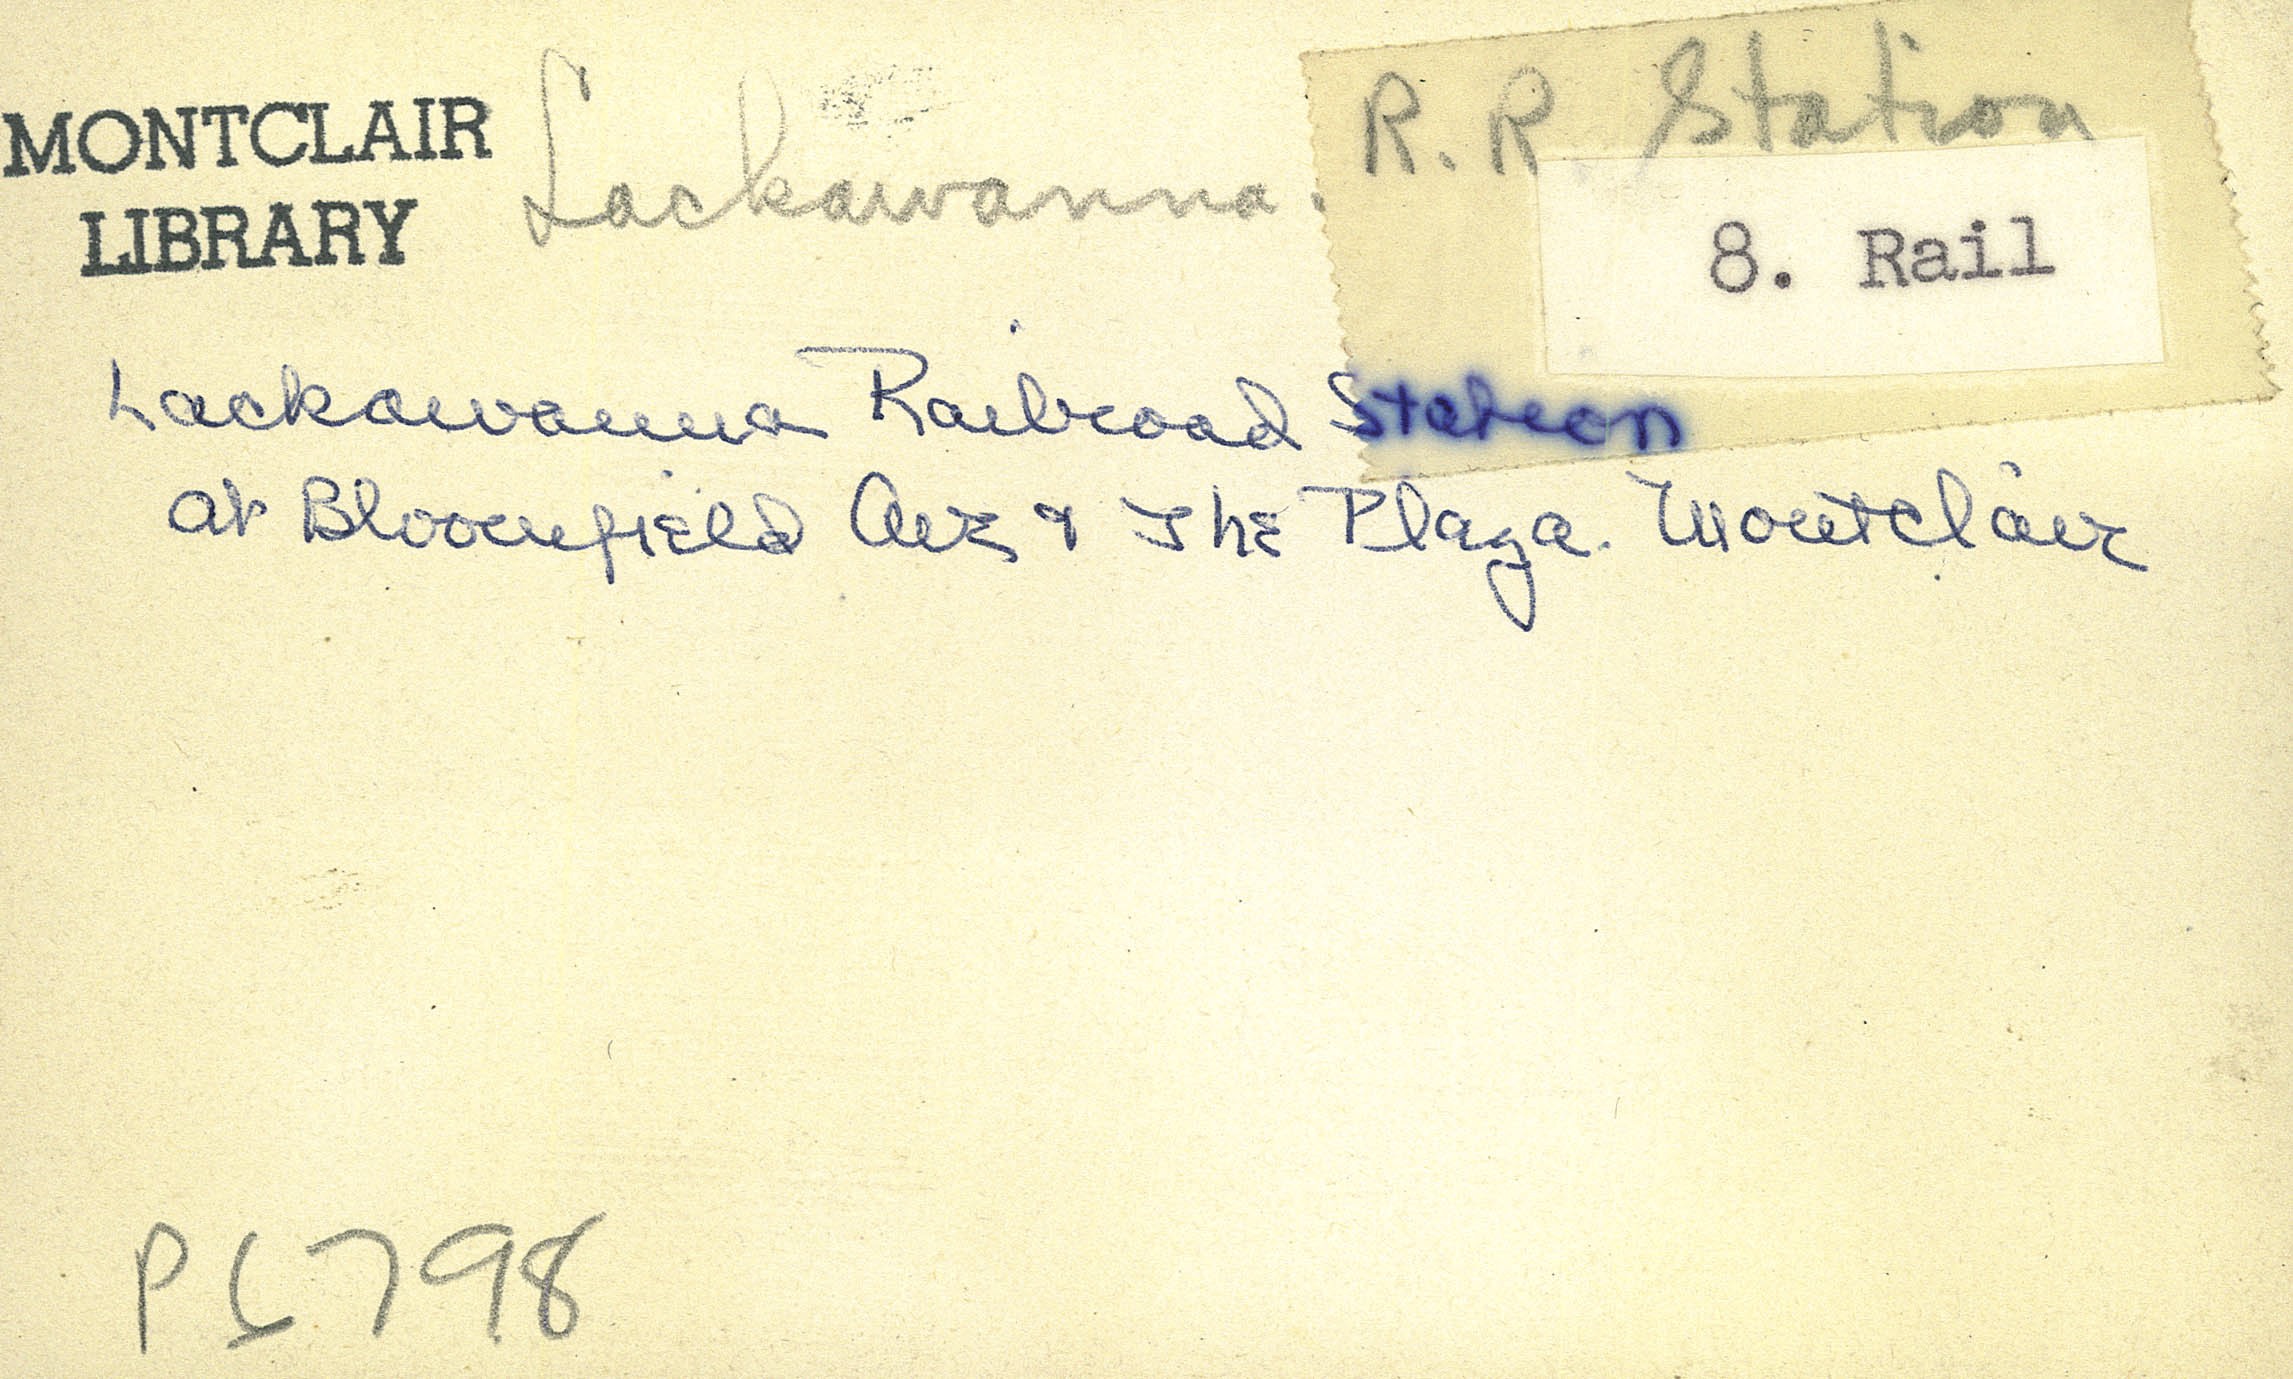 MONTCLAIR
LIBRARY
Lackawanna. R. R. Station
8. Rail
Lackawanna Railroad Station
at Bloomfield Ave & The Plaza. Montclair
P6798